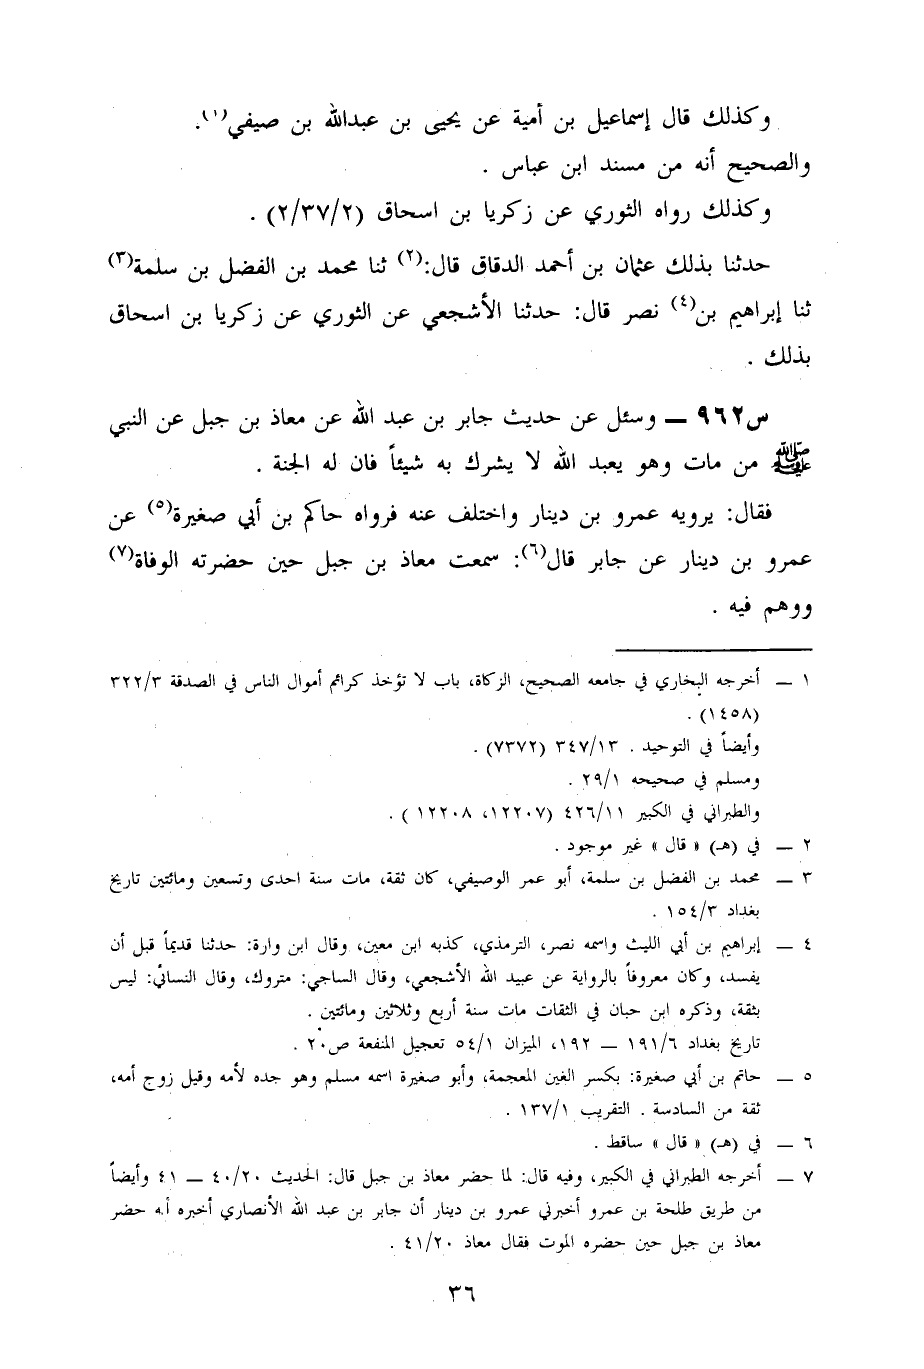 وكذلك قال إسماعيل بن أمية عن يحيى بن عبدالله بن صيفي(١).
والصحيح أنه من مسند ابن عباس .
وكذلك رواه الثوري عن زكريا بن اسحاق (٢/٣٧/٢) .
حدثنا بذلك عثمان بن أحمد الدقاق قال:(٢) ثنا محمد بن الفضل بن سلمة(٣)
ثنا إبراهيم بن(٤) نصر قال: حدثنا الأشجعي عن الثوري عن زكريا بن اسحاق
بذلك .
س٩٦٢ ــ وسئل عن حديث جابر بن عبد الله عن معاذ بن جبل عن النبي
ﷺ من مات وهو يعبد الله لا يشرك به شيئاً فان له الجنة .
فقال: يرويه عمرو بن دينار واختلف عنه فرواه حاكم بن أبي صغيرة(٥) عن
عمرو بن دينار عن جابر قال(٦): سمعت معاذ بن جبل حين حضرته الوفاة(٧)
ووهم فيه .
١ ــ أخرجه البخاري في جامعه الصحيح، الزكاة، باب لا تؤخذ كرائم أموال الناس في الصدقة ٣٢٢/٣
(١٤٥٨) .
وأيضاً في التوحيد . ٣٤٧/١٣ (٧٣٧٢) .
ومسلم في صحيحه ٢٩/١ .
والطبراني في الكبير ٤٢٦/١١ (١٢٢٠٧، ١٢٢٠٨ ) .
٢ ــ في (هـ) « قال » غير موجود .
٣ ــ محمد بن الفضل بن سلمة، أبو عمر الوصيفي، كان ثقة، مات سنة احدى وتسعين ومائتين تاريخ
بغداد ١٥٤/٣ .
٤ ــ إبراهيم بن أبي الليث واسمه نصر، الترمذي، كذبه ابن معين، وقال ابن وارة: حدثنا قديماً قبل أن
يفسد، وكان معروفاً بالرواية عن عبيد الله الأشجعي، وقال الساجي: متروك، وقال النسائي: ليس
بثقة، وذكره ابن حبان في الثقات مات سنة أربع وثلاثين ومائتين .
تاريخ بغداد ١٩١/٦ ــ ١٩٢، الميزان ٥٤/١ تعجيل المنفعة ص٢٠ .
٥ ــ حاتم بن أبي صغيرة: بكسر الغين المعجمة، وأبو صغيرة اسمه مسلم وهو جده لأمه وقيل زوج أمه،
ثقة من السادسة . التقريب ١٣٧/١ .
٦ ــ في (هـ) « قال » ساقط .
٧ ــ أخرجه الطبراني في الكبير، وفيه قال: لما حضر معاذ بن جبل قال: الحديث ٤٠/٢٠ ــ ٤١ وأيضاً
من طريق طلحة بن عمرو أخبرني عمرو بن دينار أن جابر بن عبد الله الأنصاري أخبره أنه حضر
معاذ بن جبل حين حضره الموت فقال معاذ ٤١/٢٠ .
٣٦